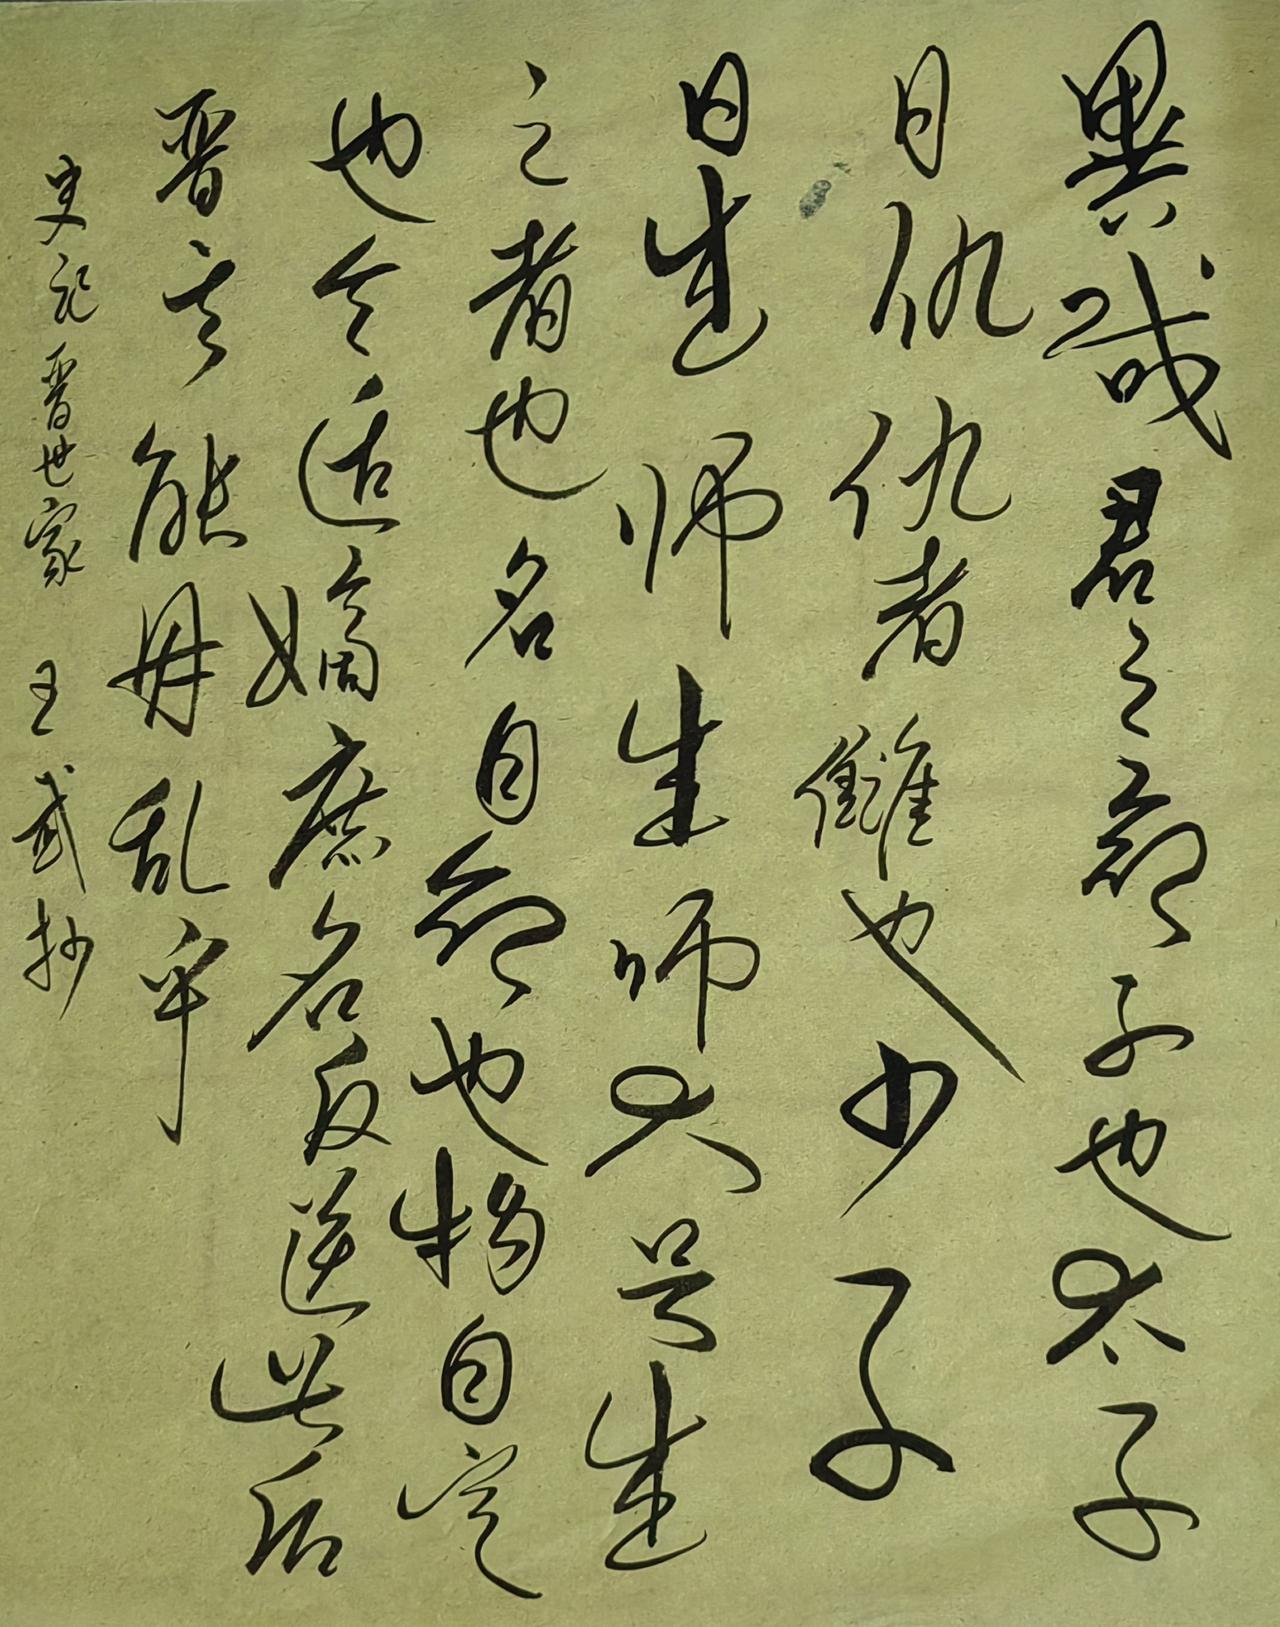 異哉君之命子也太子
曰仇仇者雠也少子
曰成师成师大号成
之者也名自命也物自定
也今适嫡庶名反逆此后
晋其能毋乱乎
史记晋世家 王武抄